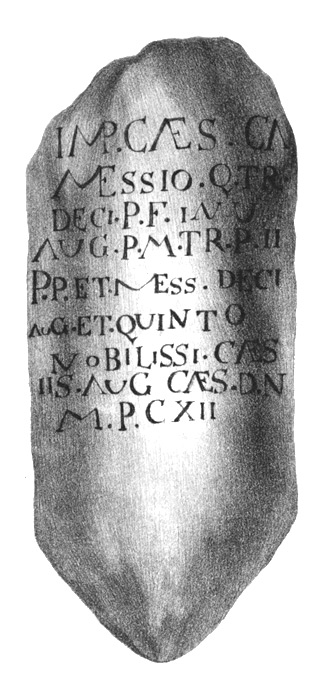 IMP.CAES.CA
MESSIO.Q.TR.
DECI.P.F.INU
AUG.P.M.TR.P.II
P.P.ET.MESS.DECI
AUG.ET.QUINTO
NOBILISSI.CAES
IIS.AUG CAES.D.N
M.P.CXII